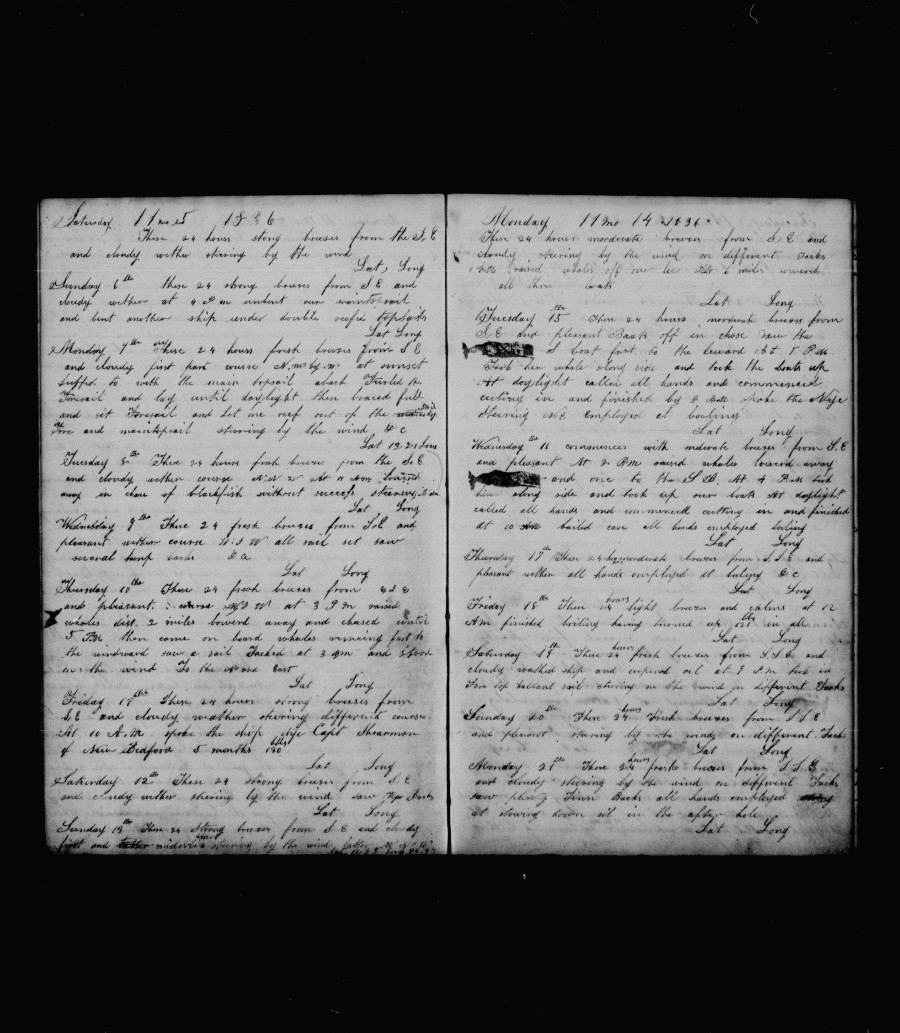 Saturday 11 mo 5 1836
These 24 hours stong breezes from the S. E
and cloudy wether stearing by the wind
Lat, Long
Sunday 6th these 24 strong breezes from S E and
cloudy wether at 4 P m unbent our maintopsail
and bent another ship under double reefd topsails
Lat Long
Monday 7th These 24 hours fresh breezes from S E
and cloudy first part course at sunset
luffed to with the main topsail aback Furled the
Foresail and lay until daylight then braced full
and set Foresail and Let one reef out of the
Fore and maintopsail stearing by the wind & C
Lat 19.21 Long
Tuesday 8th These 24 hours fresh breezes from the S. E
and cloudy wether course At 11 Am lowered
away in chase of blackfish without success steering
Lat Long
Wednesday 9th These 24 fresh breezes from S.E and
pleasant wether course W. S W all sail set saw
several hump backs & C
Lat Long
Thursday 10th These 24 fresh breezes from
and pleasant. course at 3 P m raised
whales dist. 2 miles lowerd away and chased until
5 P.M then come on board whales remaing fast to
the windward saw a sail Tacked at 3 am and stood
on the wind To the and East
Lat Long
Friday 11th These 24 hours strong breezes from
S.E and cloudy weather steering different courses
At 10 A.M spoke the ship Nye Capt Shearman
of New Bedford 5 months 130 bbls
Lat Long
Saturday 12th These 24 strong breezes from S. E
and cloudy wether stearing by the wind saw
Lat Long
Sunday 13th These 24 Strong breezes from S. E and cloudy
first and middle part stearing by the wind latter
Monday 11 mo 14 1836
These 24 hours moderate breezes from S, E and
cloudy steering by the wind on different Tacks
raised whales off our lee 6 miles lowered
all three boats
Lat Long
Tuesday 15th These 24 hours moderate breezes from
S. E and pleasant Boats off in chase saw the
S boat fast to the leward At 5 P M
Took her whale along side and took the boats up
At daylight called all hands and commenced
cutting in and finished by 8 spoke the Nye
Steering Employed at boiling
Lat Long
Wednesday 16th comences with moderate breezes from S. E
and pleasant At 2 P.M raised whales lowered away
and one to the S B. At 4 P.M took
him along side and took up our boats At daylight
called all hands and commenced cutting in and finished
at 10 AM bailed case all hands employed boiling
Lat Long
Thursday 17th These 24 hours moderate breezes from S. S E and
pleasant wether all hands employed at boiling & c
Lat Long
Friday 18th These 24 hours light breezes and calms at 12
A m finished boiling having turned up bbls in all
Lat Long
Saturday 19th These 24 hours fresh breezes from S. S E and
cloudy washed ship and at 9 P.M
Fore top Gallant sail stearing on the wind on different Tacks
Lat Long
Sunday 20th These 24 hours Fresh breezes from S. S E
and pleasant stearing by the winds on different Tack
Lat Long
Monday 21st These 24 hours fresh breezes from S. S E
and cloudy stearing by the wind on different Tacks
saw plenty Finn Backs all hands employed
at stowing down oil in the after hole
Lat Long